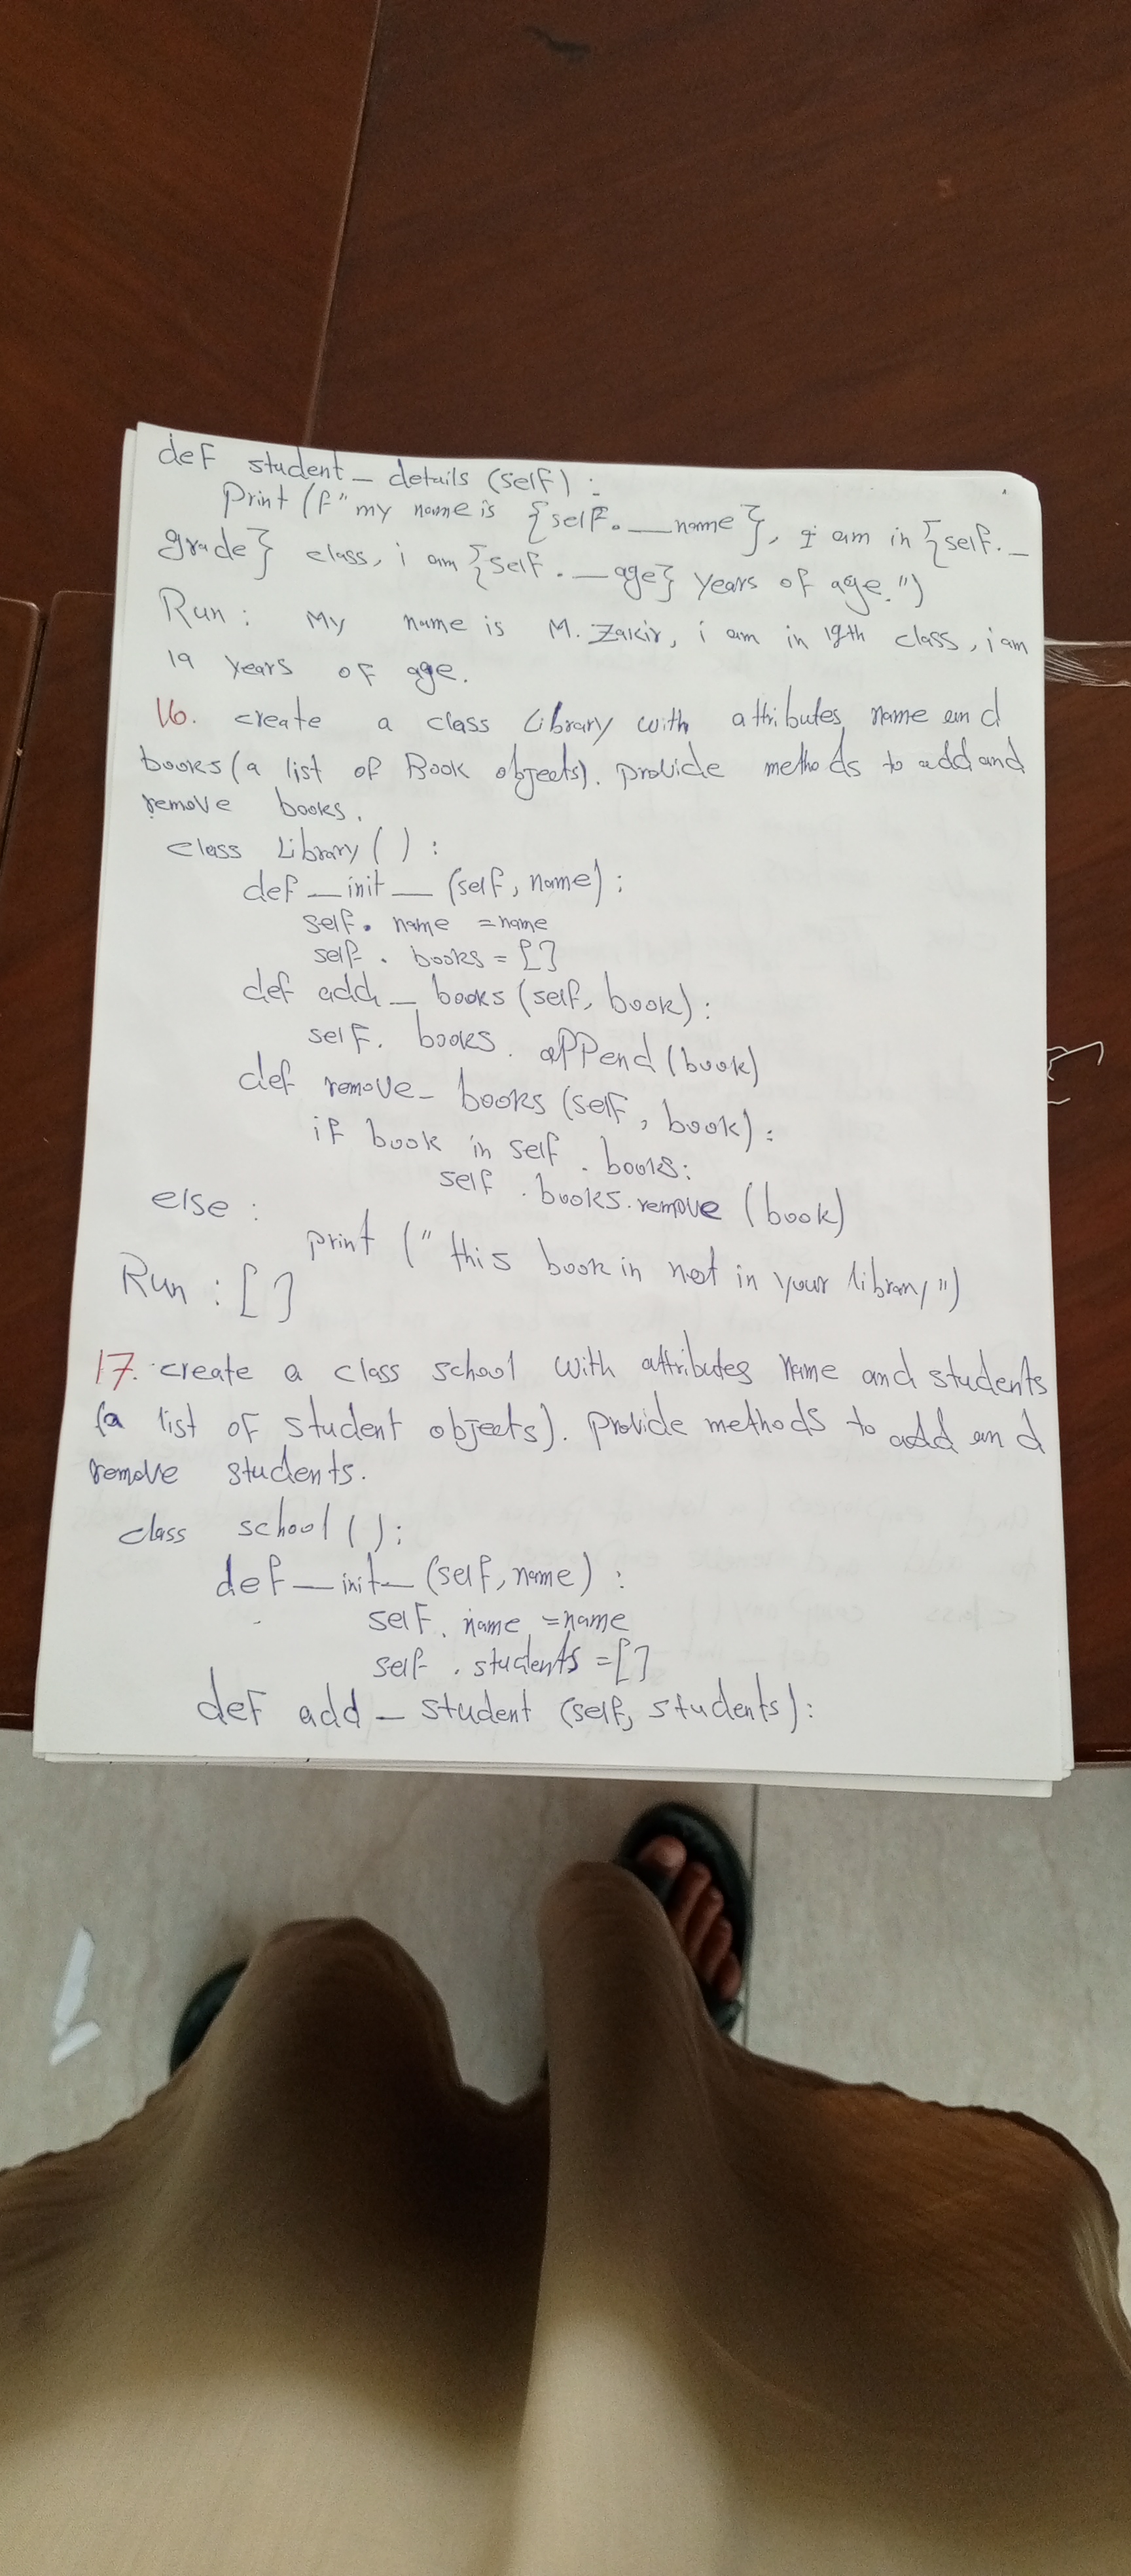 def student_details (self) :
Print (f"my name is {self.__name}, i am in {self._
grade} class, i am {self.__age} years of age.")
Run : My name is M. Zakir, i am in 19th class, i am
19 years of age.
16. create a class Library with attributes name and
books (a list of Book objects). provide methods to add and
remove books.
class Library ( ) :
def __init__ (self, name) :
self. name = name
self . books = []
def add_books (self, book) :
self. books. append (book)
def remove_books (self, book) :
if book in self . books:
self . books. remove (book)
else :
print (" this book in not in your library")
Run : [ ]
17. create a class school with attributes name and students
(a list of student objects). provide methods to add and
remove students.
class school ( ) :
def __init__ (self, name) :
self. name = name
self . students = []
def add_student (self, students) :